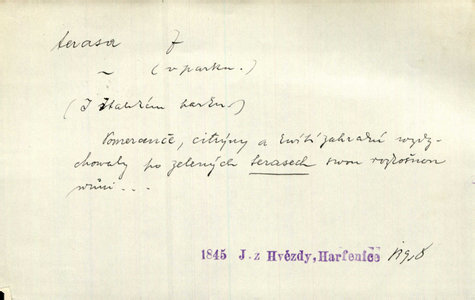 terasa f
~ (v parku.)
(
Pomeranče, citryny a kvítí zahradní vydy-
chovaly po zelených terasech svou rozkošnou
vůni...
1845 J. z Hvězdy, Harfenice